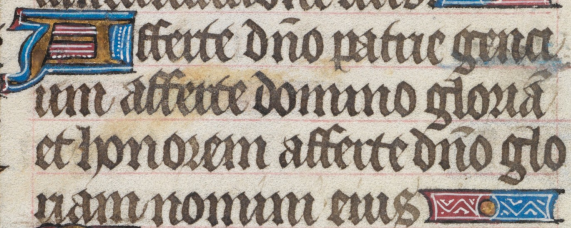 Afferte dño patrie genci
um afferte domino gloriã
et honorem afferte dño glo
riam nomini eius